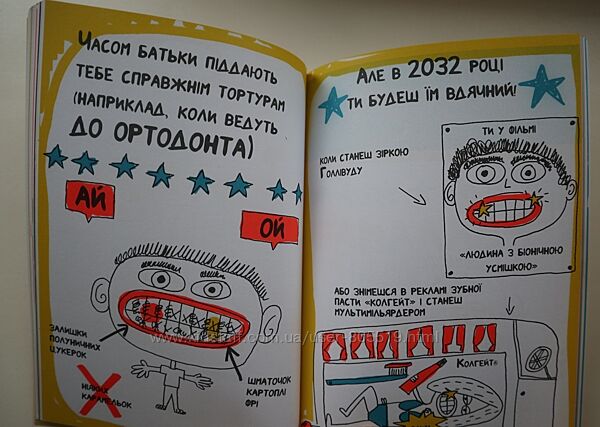 Часом батьки піддають
тебе справжнім тортурам
(наприклад, коли ведуть
до ортодонта)
АЙ
ОЙ
залишки
полуничних
цукерок
ніяких
карамельок
шматочок
картоплі
фрі
Але в 2032 році
ти будеш їм вдячний!
коли станеш зіркою
Голлівуду
ти у фільмі
«Людина з біонічною
усмішкою»
або знімешся в рекламі зубної
пасти «Колгейт» і станеш
мультимільярдером
Колгейт®